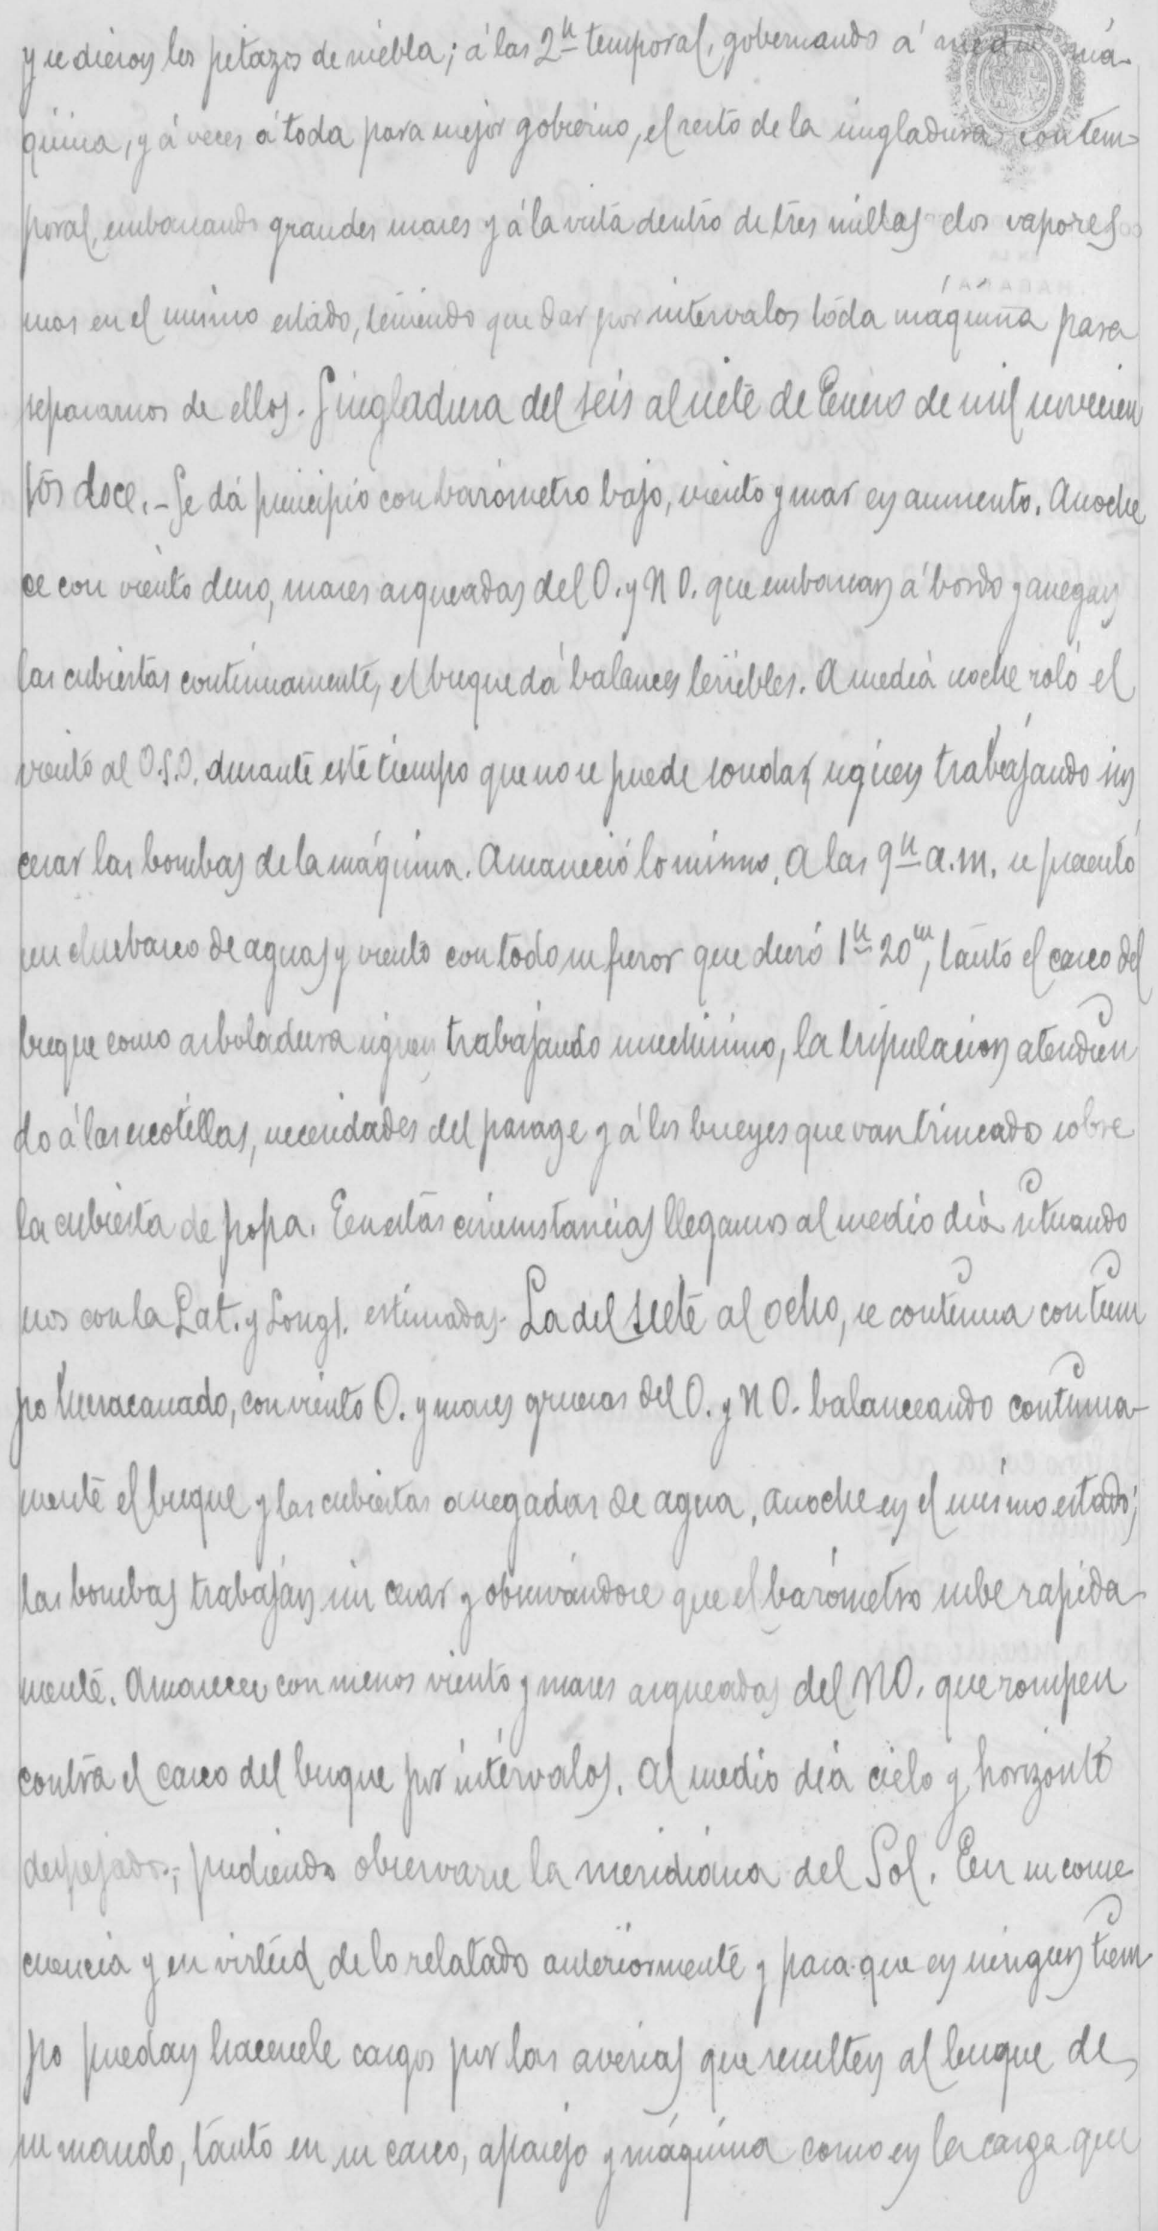 y se dieron los pitazos de niebla; á las 2h temporal, gobernando á media má-
quina, y á veces á toda para mejor gobierno, el resto de la singladura con tem-
poral, embarcando grandes mares y á la vista dentro de tres millas dos vapores
mas en el mismo estado, teniendo que dar por intervalos toda máquina para
separarnos de ellos. Singladura del seis al siete de Enero de mil novecien
tos doce. - Se dá principio con barómetro bajo, viento y mar en aumento. Anoche
ce con viento duro, mares arqueadas del O. y N O. que embarcan á bordo y anegan
las cubiertas continuamente, el buque dá balances terribles. A media noche roló el
viento al O.S.O. durante este tiempo que no se puede sondar, siguen trabajando sin
cesar las bombas de la máquina. Amaneció lo mismo. A las 9h a.m. se presentó
un chubasco de aguas y viento con todo su furor que duró 1h 20m, tanto el casco del
buque como arboladura siguen trabajando muchisimo, la tripulacion atendien
do á las escotillas, necesidades del pasage y á los bueyes que van trincados sobre
la cubierta de popa. En estas circunstancias llegamos al medio dia situando
nos con la Lat. y Longt. estimadas. La del siete al ocho, se continua con tiem
po huracanado, con viento O. y mares gruesas del O. y N O. balanceando continua-
mente el buque y las cubiertas anegadas de agua, anoche en el mismo estado;
las bombas trabajan sin cesar y observándose que el barómetro sube rapida-
mente. Amanecer con menos viento y mares arqueadas del NO. que rompen
contra el casco del buque por intérvalos. Al medio dia cielo y horizonte
despejados; pudiendo observarse la meridiana del Sol. En su conse
cuencia y en virtud de lo relatado anteriormente y para que en ningun tiem
po puedan hacersele cargos por las averias que resulten al buque de
su mando, tanto en su casco, aparejo y máquina como en la carga que